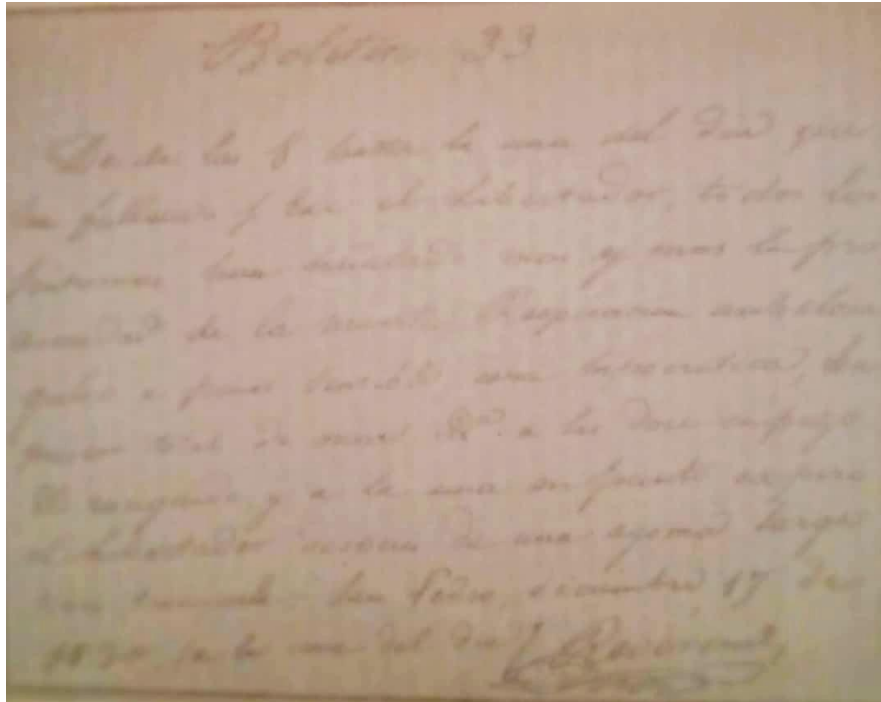 Boletin 33
Desde las 8 hasta la una del dia que
ha fallecido S. Exc. el Libertador, todos los
sintomas han señalado mas y mas la pro
de la muerte. Respiracion anhelosa
pulso a penas sensible, cara hipocratica,
&a. a las doce empezó
el ronquido y a la una en punto espiró
el Libertador despues de una agonia larga
pero San Pedro, diciembre 17 de
1830 a la una del dia Reverend